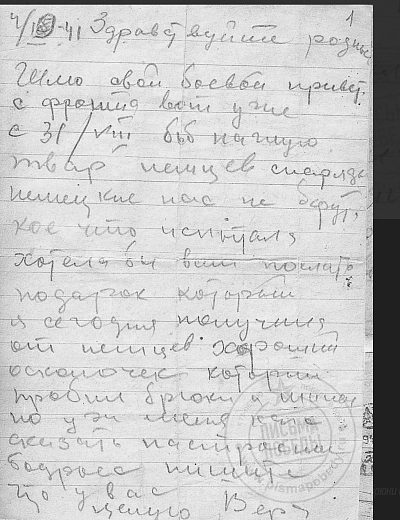 1
4/IX-41 Здравствуйте родные
Шлю свой боевой привет
с фронта вот уже
с 31/VIII бью наглую
тварь немцев снаряды
немецкие нас не берут,
кое что испытала
хотела бы вам послать
подарок который
я сегодня получила
от немцев хороший
осколочек который
пробил брюки и
но уж меня
сказать
бодрее пишите
что у вас
целую Вера